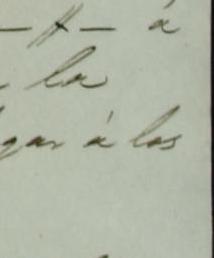 á
la
gar á los